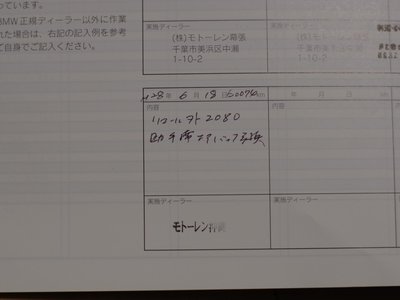 っています。
BMW 正規ディーラー以外に作業
れた場合は、右記の記入例を参考
ご自身でご記入ください。
実施ディーラー
(株)モトーレン幕張
千葉市美浜区中瀬
1-10-2
実施ディーラー
(株)モトーレン幕張
千葉市美浜区中瀬
1-10-2
実施ディーラー
H28年 6月 18日 km
内容
リコール外 2080
助手席エアバッグ交換
実施ディーラー
モトーレン幕張
年 月 日 km
内容
実施ディーラー